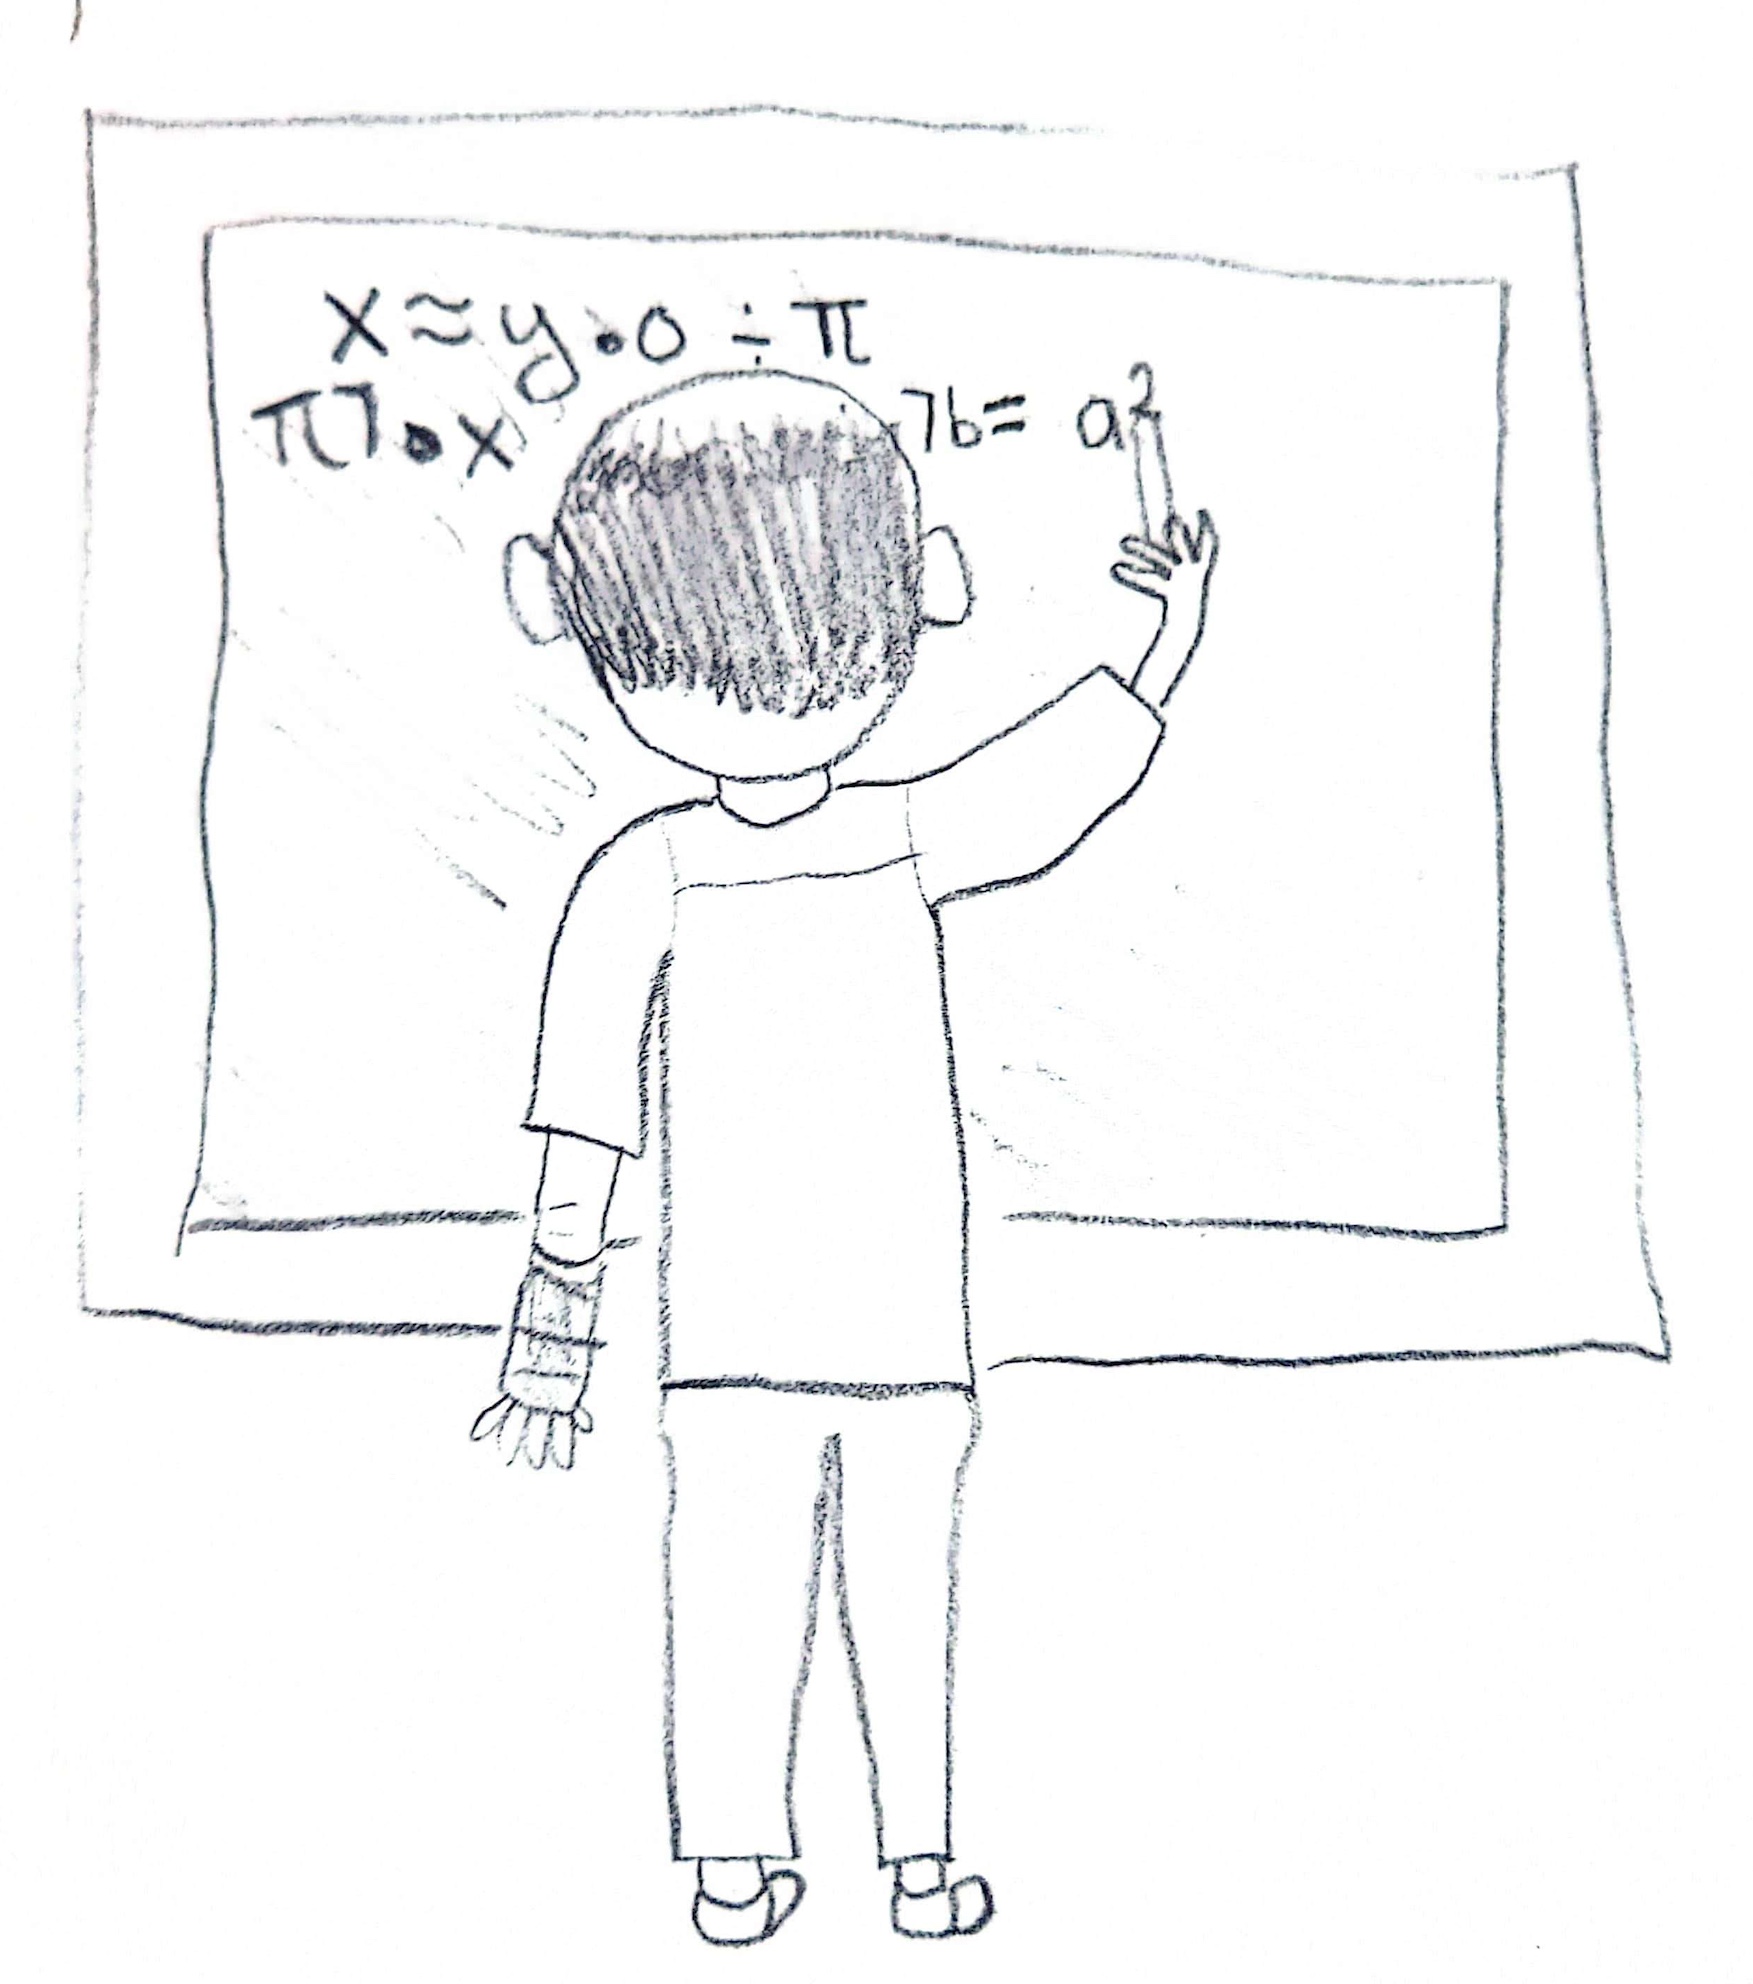 x≈y•0÷π
π7•x 7b= a²